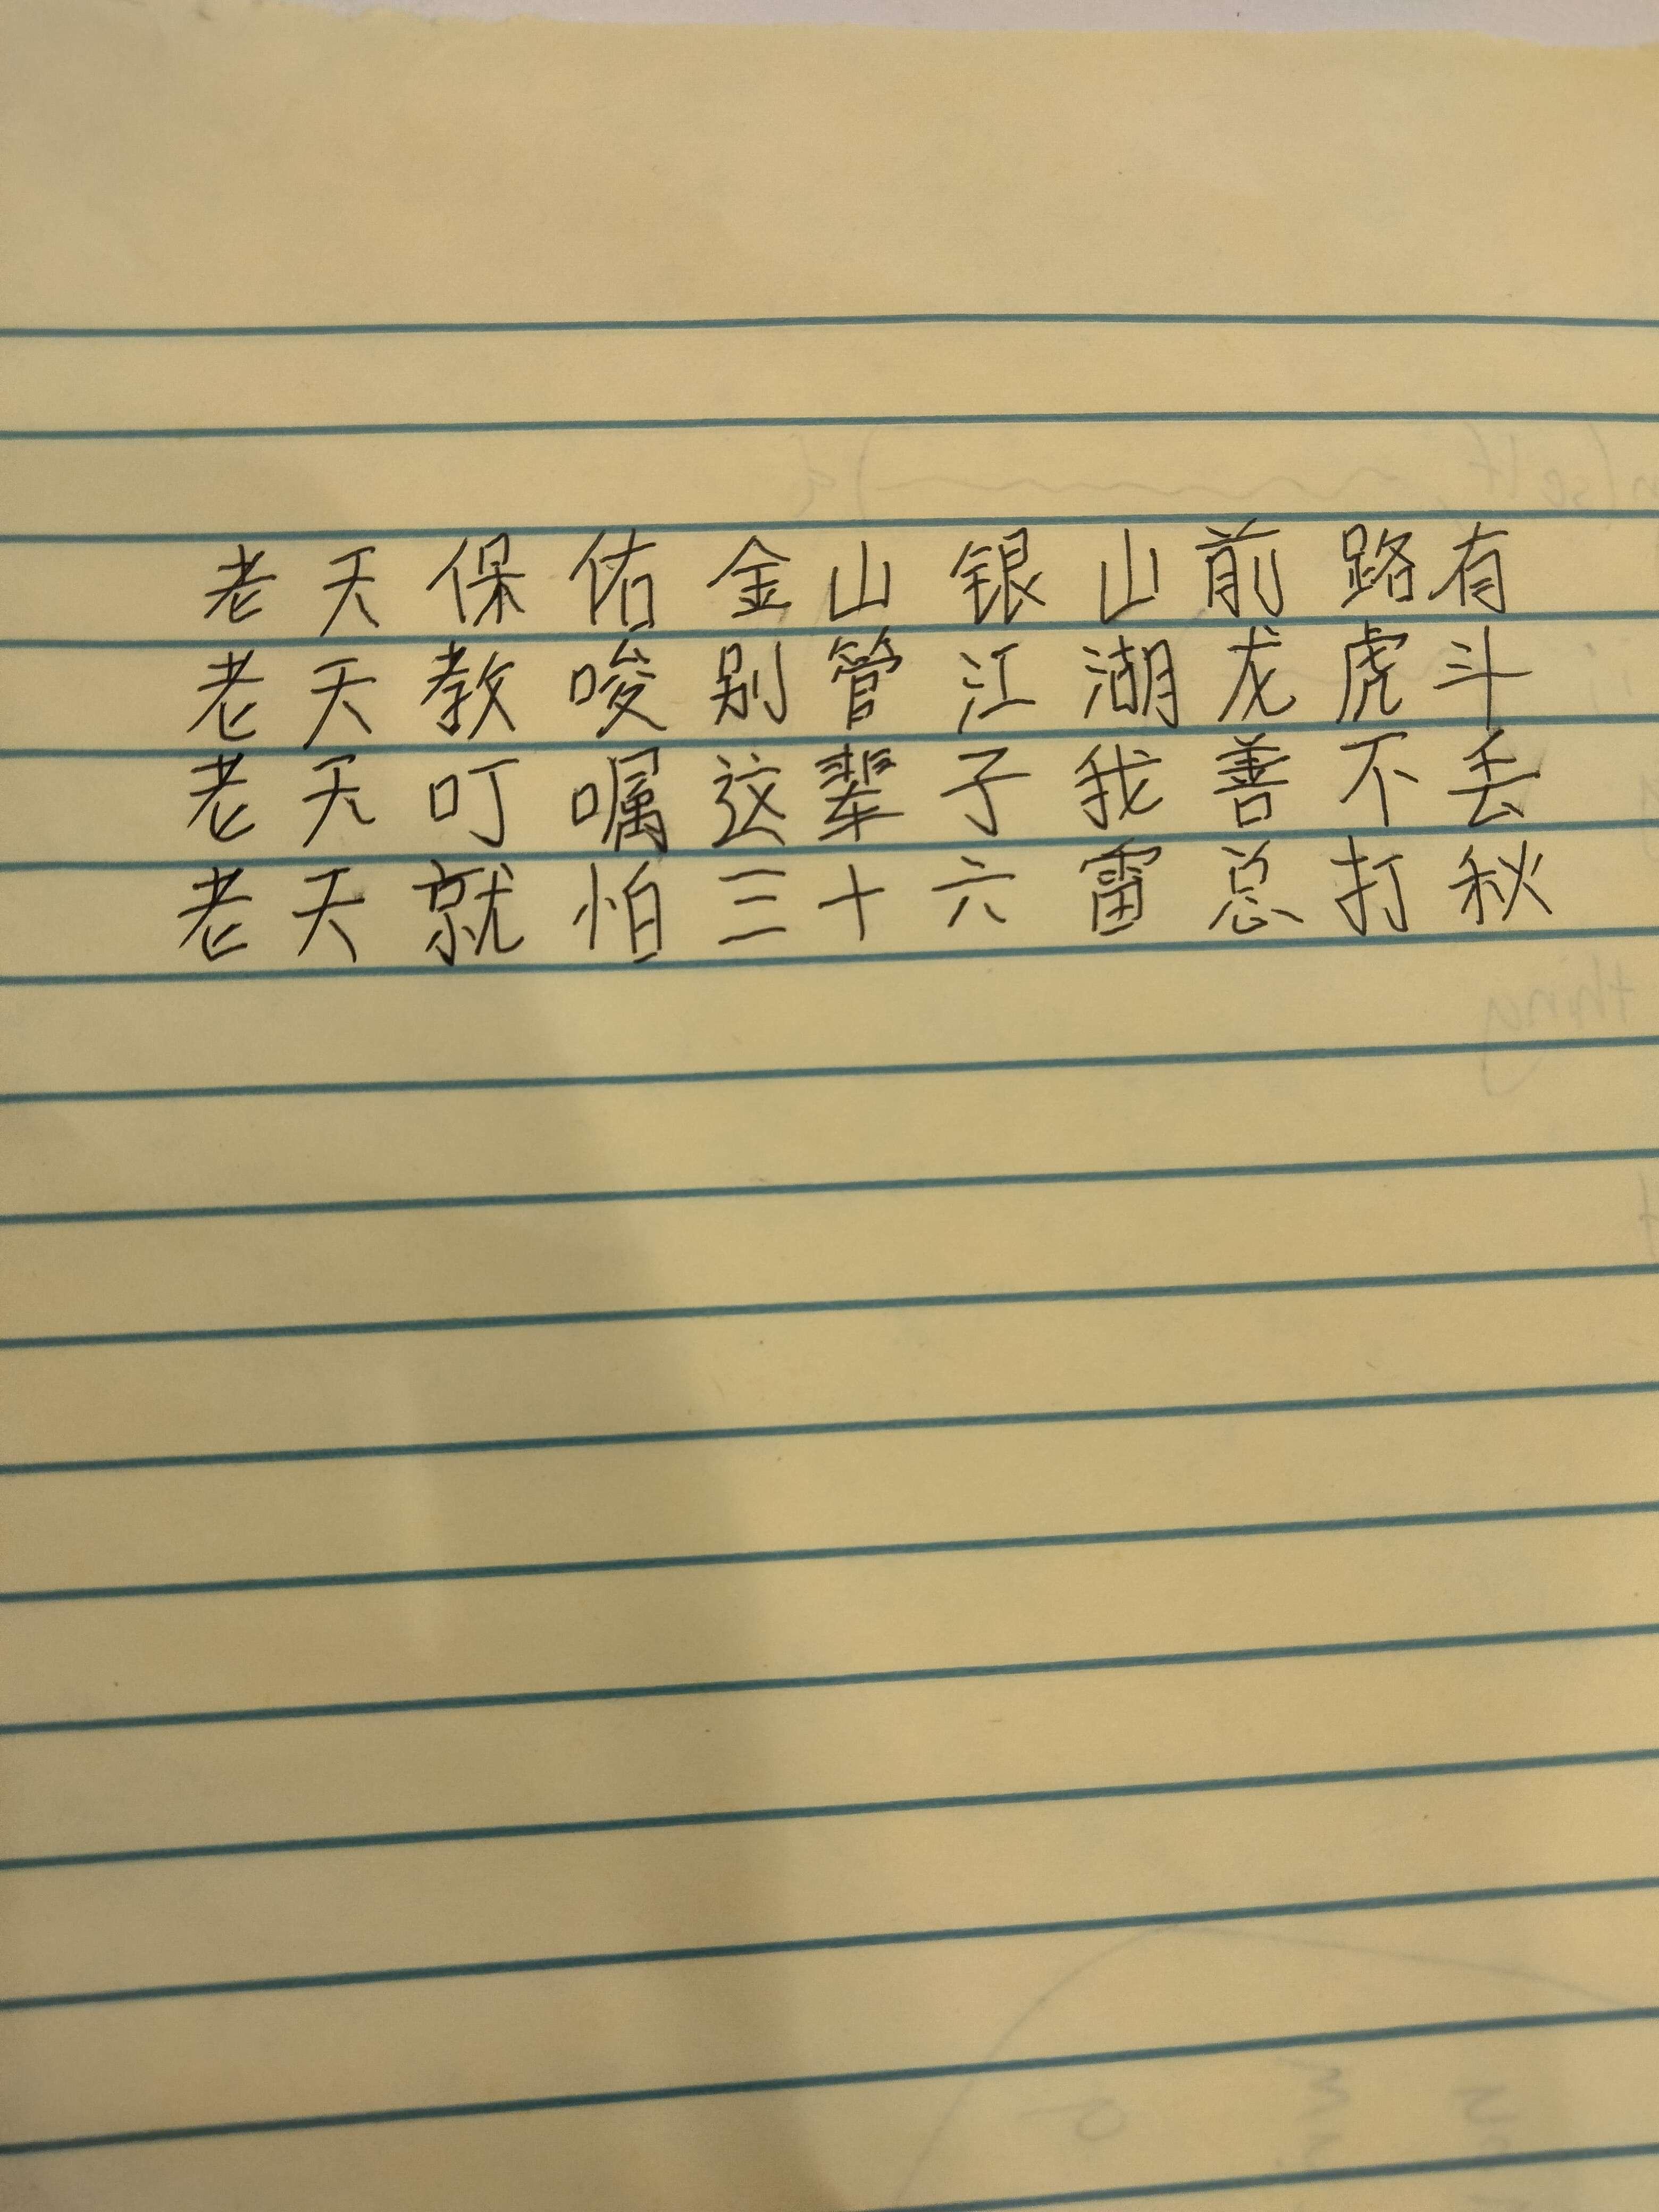 老天保佑金山银山前路有
老天教唆别管江湖龙虎斗
老天叮嘱这辈子我善不丢
老天就怕三十六雷总打秋